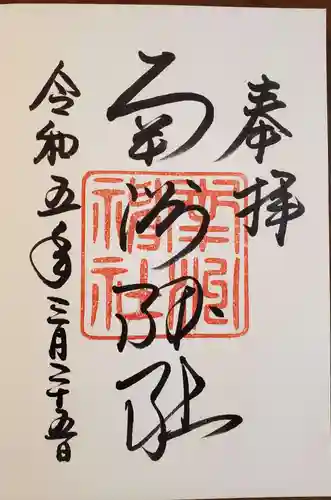 奉拝
南洲神社
南洲神社
令和五年三月二十五日